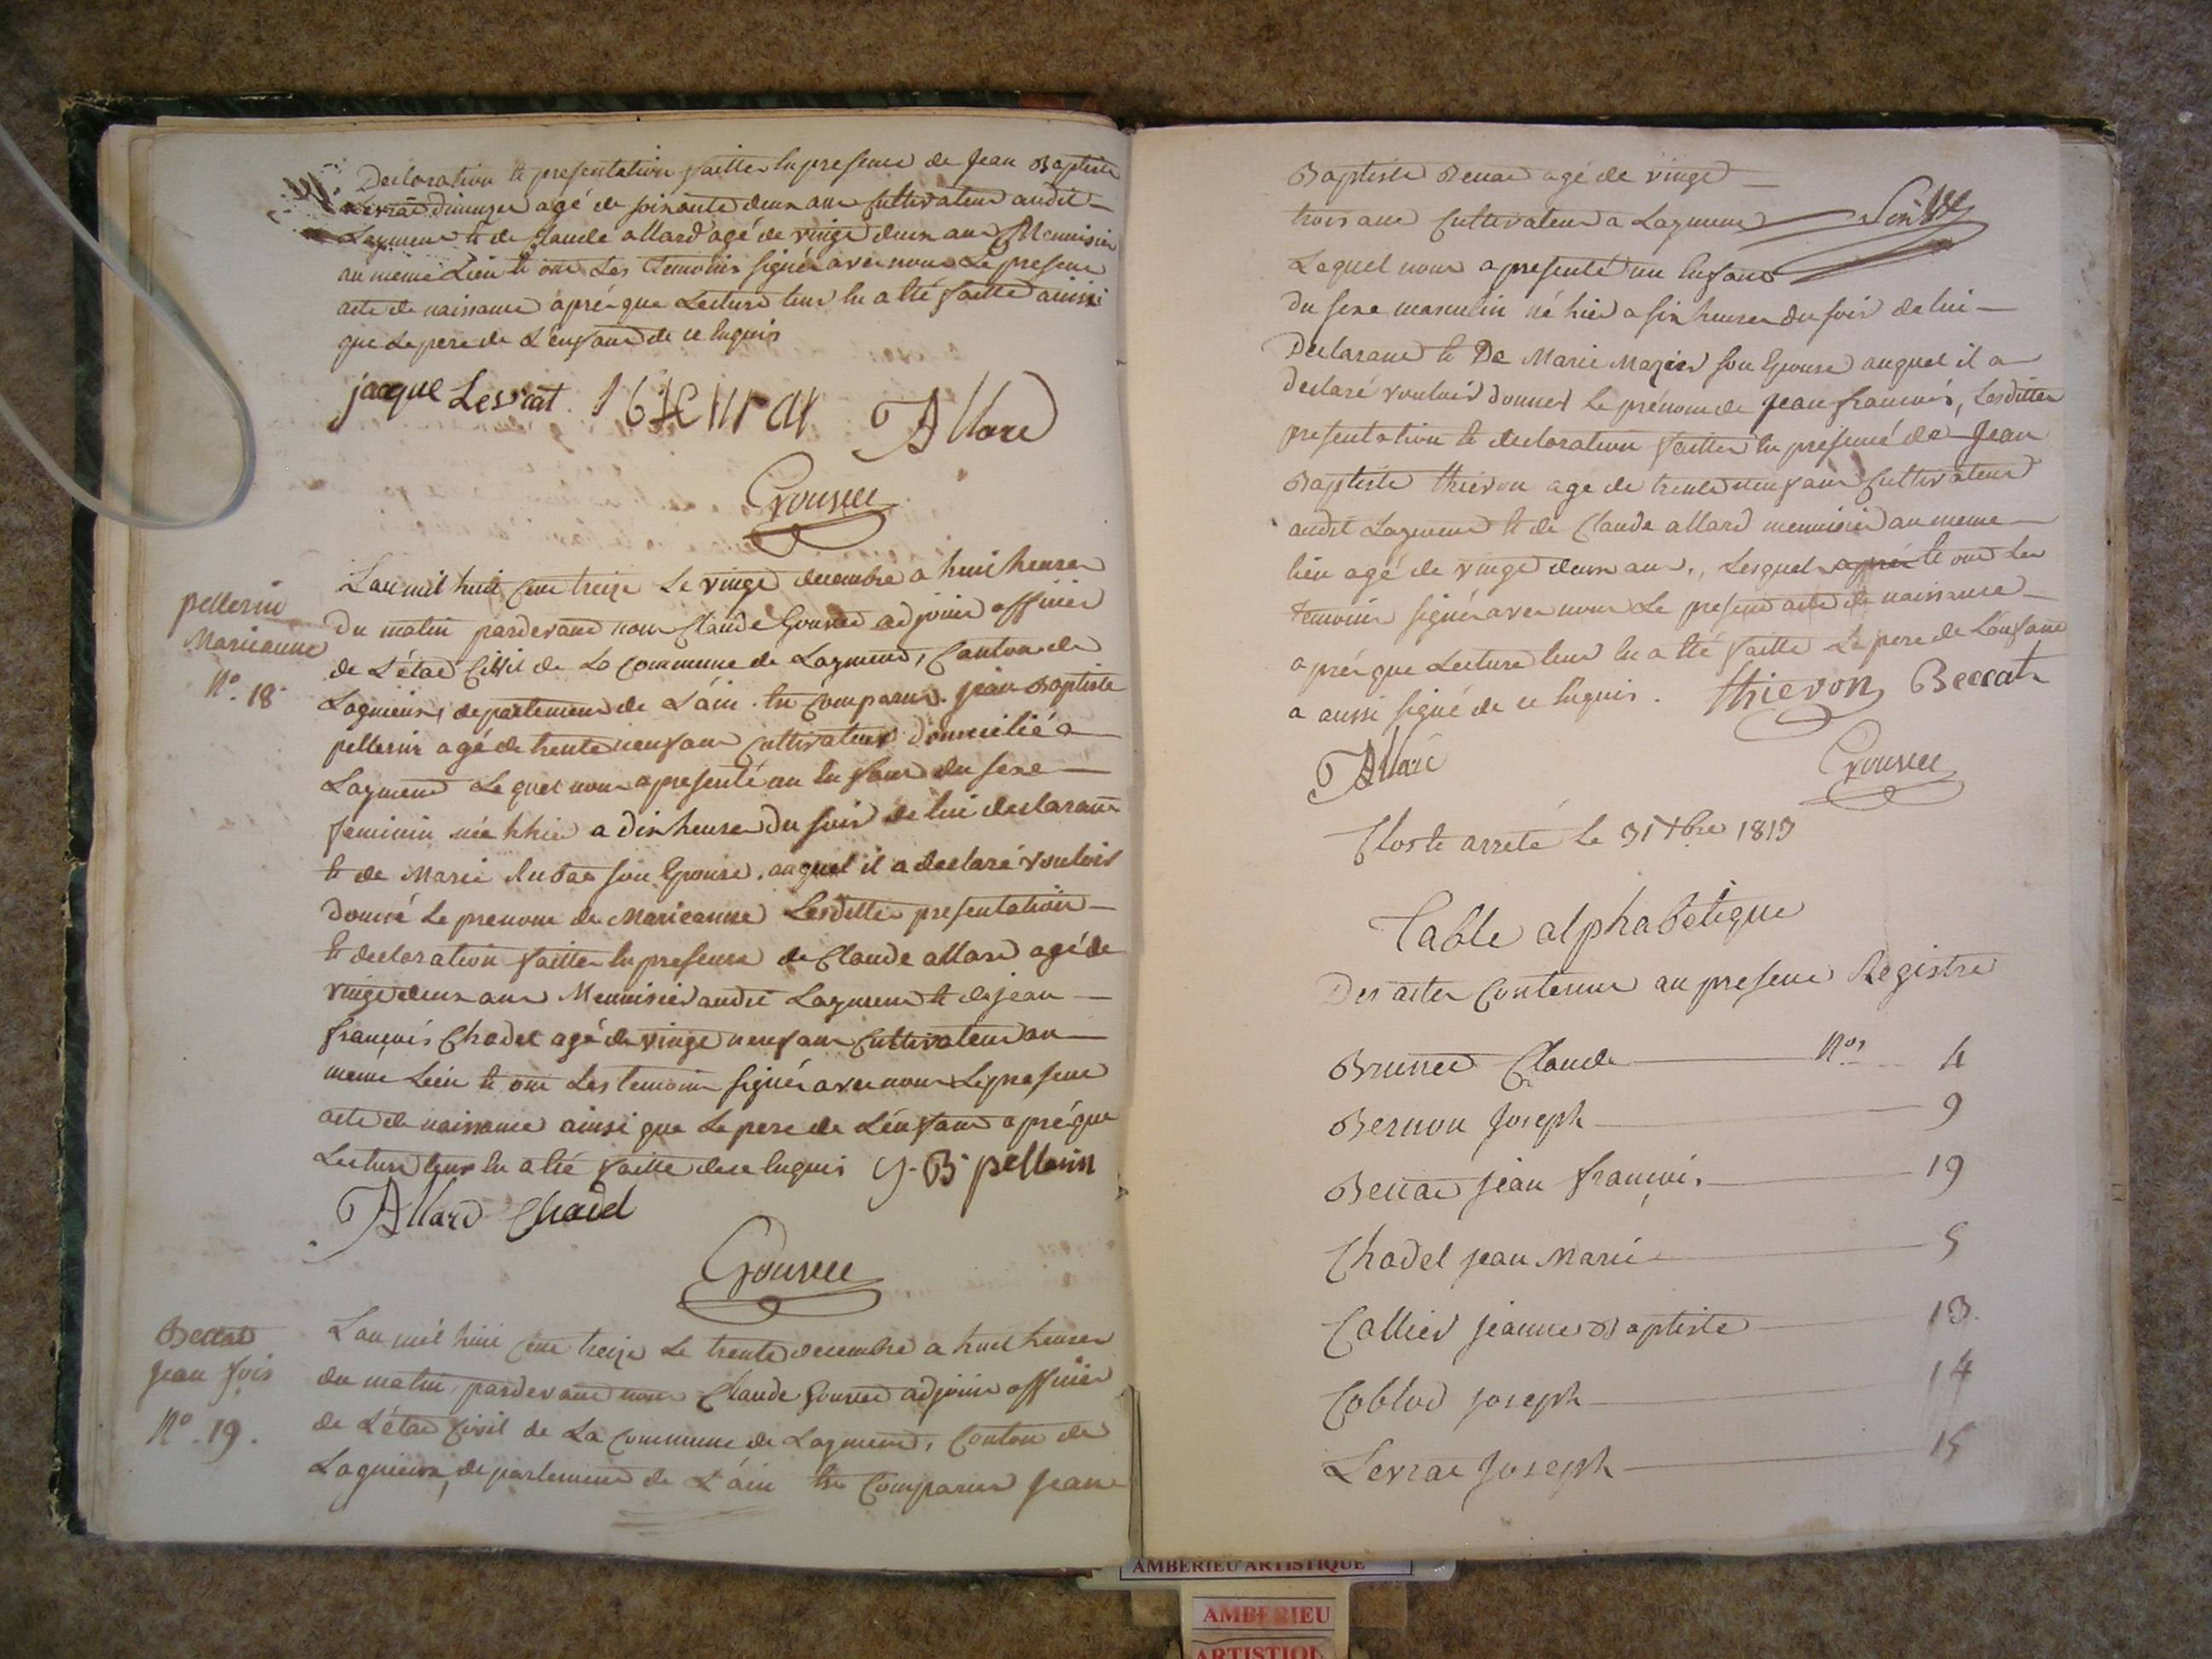 Declaration et presentation faittes en presence de Jean Baptiste
Levrat dimuger agé de soixante deux ans Cultivateur audit
Leyment et de Claude allard agé de vingt deux ans Menuisier
au meme Lieu et ont Les temoins signés avec nous Le present
acte de naissance après que Lecture leur en a été faitte ainsi
que Le pere de L'enfant de ce Enquis
jacque Levrat. Allard
Gouvret
pellerin
Marieanne
N°. 18
L'an mil huit Cent treize Le vingt decembre a huit heures
Du matin pardevant nous Claude Gouvret adjoint officier
de L'état Civil de La Commune de Leyment, Canton de
Lagnieux, departement de L'ain. est Comparu. Jean Baptiste
pellerin agé de trente neuf ans Cultivateur domicilié a
Leyment Lequel nous a presenté un Enfant du sexe
feminin née hhier a dix heures Du soir de lui declarant
et de Marie Aubat son Epouse. auquel il a declaré vouloir
donné Le prenom de Marieanne Lesdittes presentation
et declaration faittes en presence de Claude allard agé de
vingt deux ans Menuisier audit Leyment et de jean
françois Chadel agé de vingt neuf ans Cultivateur au
meme Lieu et ont Les temoins signés avec nous Le present
acte de naissance ainsi que Le pere de L'enfant apré que
Lecture leur en a été faitte de ce Enquis J. B. pellerin
Allard Chadel
Gouvret
Beccat
Jean fois
N°. 19.
L'an mil huit Cent treize Le trente decembre a huit heures
du matin, pardevant nous Claude Gouvret adjoint officier
de L'état Civil de La Commune de Leyment, Conton de
Lagnieux, departement de L'ain est Comparu Jean
Baptiste Beccat agé de vingt
trois ans Cultivateur a Leyment
Lequel nous a presenté un Enfant
Du sexe masculin né hier a six heures du soir de lui
Declarant et De Marie Mazier son Epouse auquel il a
declaré vouloir donner Le prénom de Jean françois, Lesdittes
presentation et declaration faittes en presence de Jean
Baptiste thievon agé de trente neuf ans Cultivateur
audit Leyment et de Claude allard menuisier au meme
lieu agé de vingt deux ans., Lesquels après et ont Les
temoins signés avec nous Le present acte de naissance
après que Lecture leur en a été faitte Le pere de L'enfant
a aussi signé de ce Enquis. thievon Beccat
Allard
Gouvret
Clos et arreté Le 31 Xbre 1813
Table alphabétique
Des actes Contenus au present Registre
Brunet Claude N°s 4
Bernon Joseph 9
Beccat jean françois 19
Chadel jean Marie 5
Callier jeanne Baptiste 13.
Coblod joseph 14
Levrat Joseph 15
AMBERIEU ARTISTIQUE
AMBERIEU